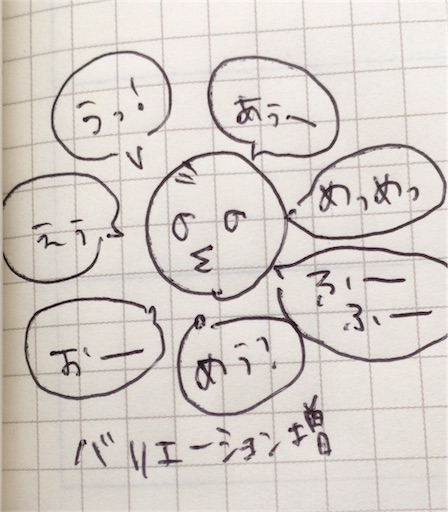 うっ!
あぅー
めっめっ
えぅ、
ふぃー
ふぃー
おー
めぅ?
バリエーション増